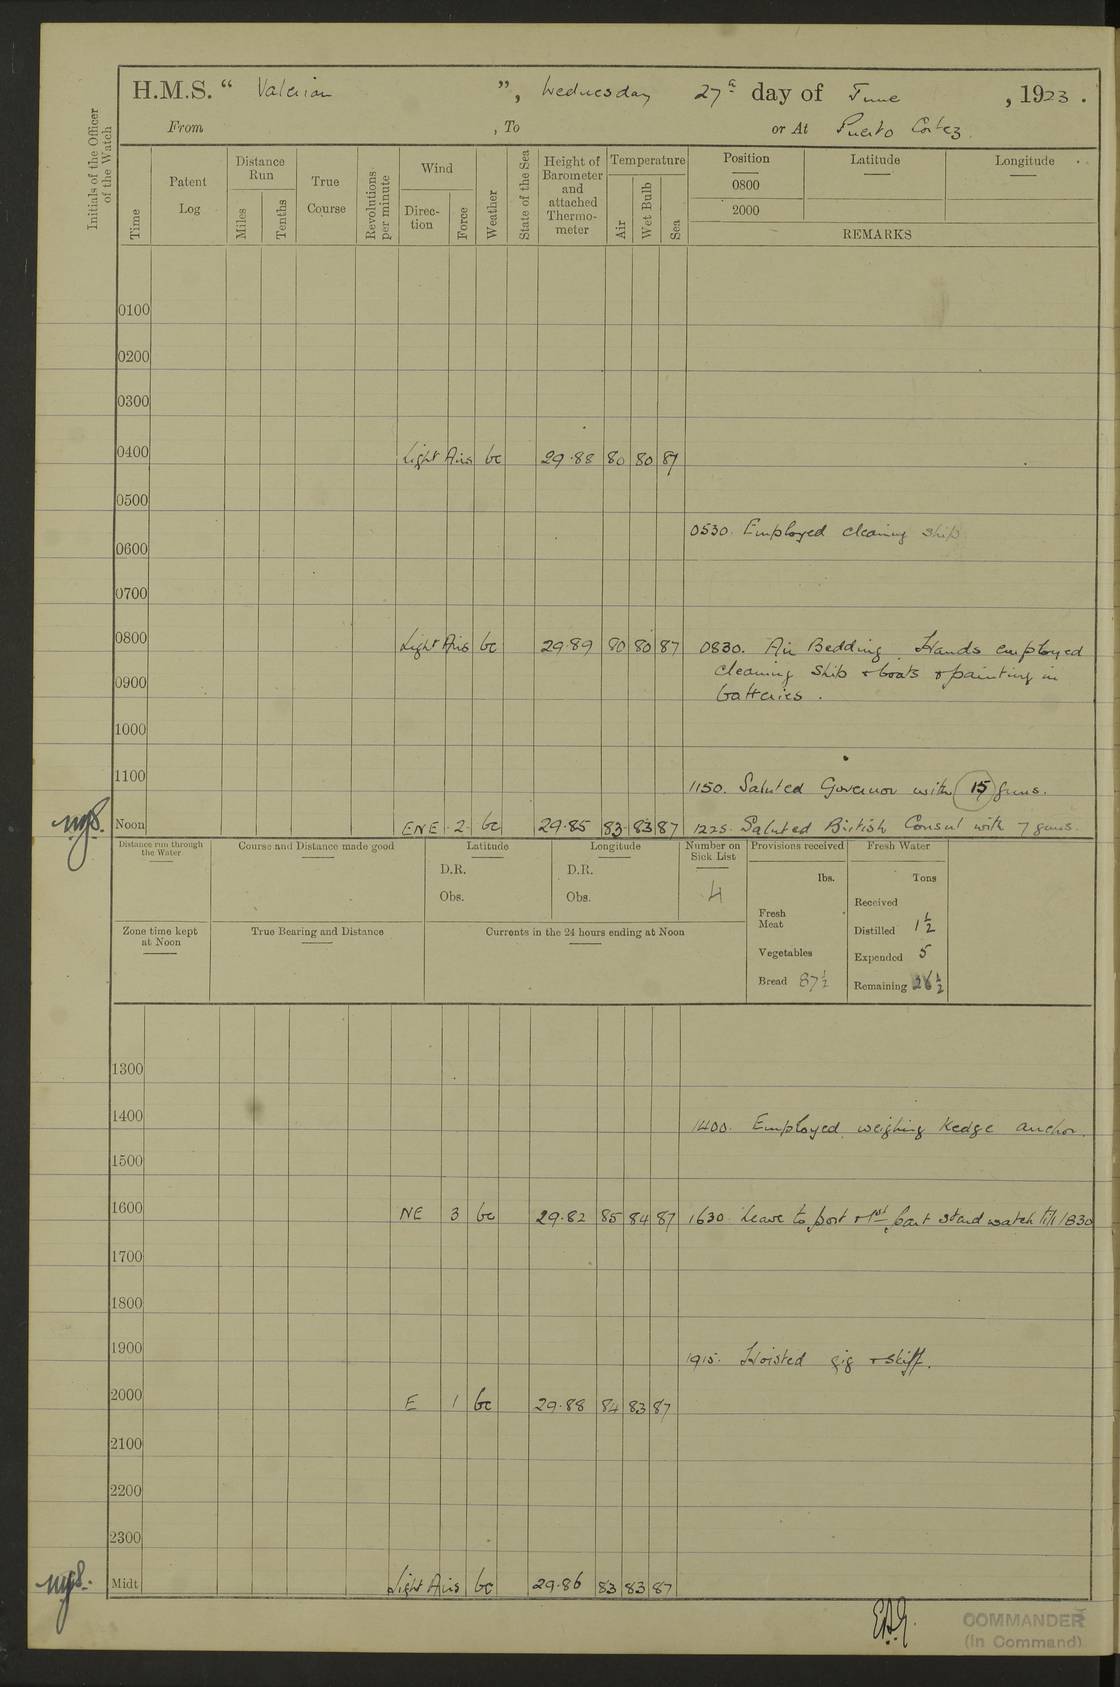 H.M.S. “ Valerian ”, Wednesday 27th day of June , 1923 .
From , To or At Puerto Cortez.
Initials of the Officer of the Watch
Time
Patent Log
Distance Run
Miles
Tenths
True Course
Revolutions per minute
Wind
Direction
Force
Weather
State of the Sea
Height of Barometer and attached Thermometer
Temperature
Air
Wet Bulb
Sea
Position Latitude Longitude
0800
2000
REMARKS
0100
0200
0300
0400 Light Airs bc 29.88 80 80 87
0500
0530. Employed cleaning ship
0600
0700
0800 Light Airs bc 29.89 80 80 87 0830. Air Bedding. Hands employed
cleaning ship & boats & painting in
0900
batteries.
1000
1100
1150. Saluted Governor with 15 guns.
Noon ENE 2 bc 29.85 83 83 87 1225. Saluted British Consul with 7 guns.
Distance run through the Water
Course and Distance made good
Latitude
D.R.
Obs.
Longitude
D.R.
Obs.
Number on Sick List
4
Provisions received
lbs.
Fresh Meat
Vegetables
Bread 87½
Fresh Water
Tons
Received
Distilled 1½
Expended 5
Remaining 26½
Zone time kept at Noon
True Bearing and Distance
Currents in the 24 hours ending at Noon
1300
1400 1400. Employed weighing Kedge anchor.
1500
1600 NE 3 bc 29.82 85 84 87 1630 Leave to port & 1st part stand watch till 1830
1700
1800
1900 1915. Hoisted gig & skiff.
2000 E 1 bc 29.88 84 83 87
2100
2200
2300
Midt Light Airs bc 29.86 83 83 87
COMMANDER
(In Command)